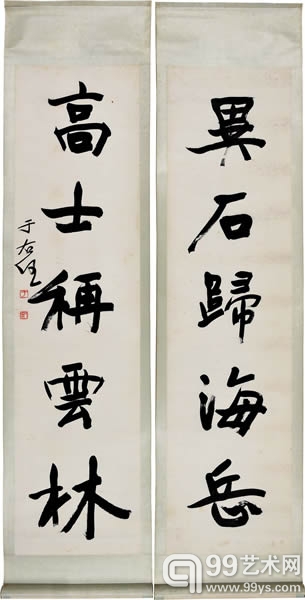 異石歸海岳
高士稱雲林
于右任
99艺术网
www.99ys.com